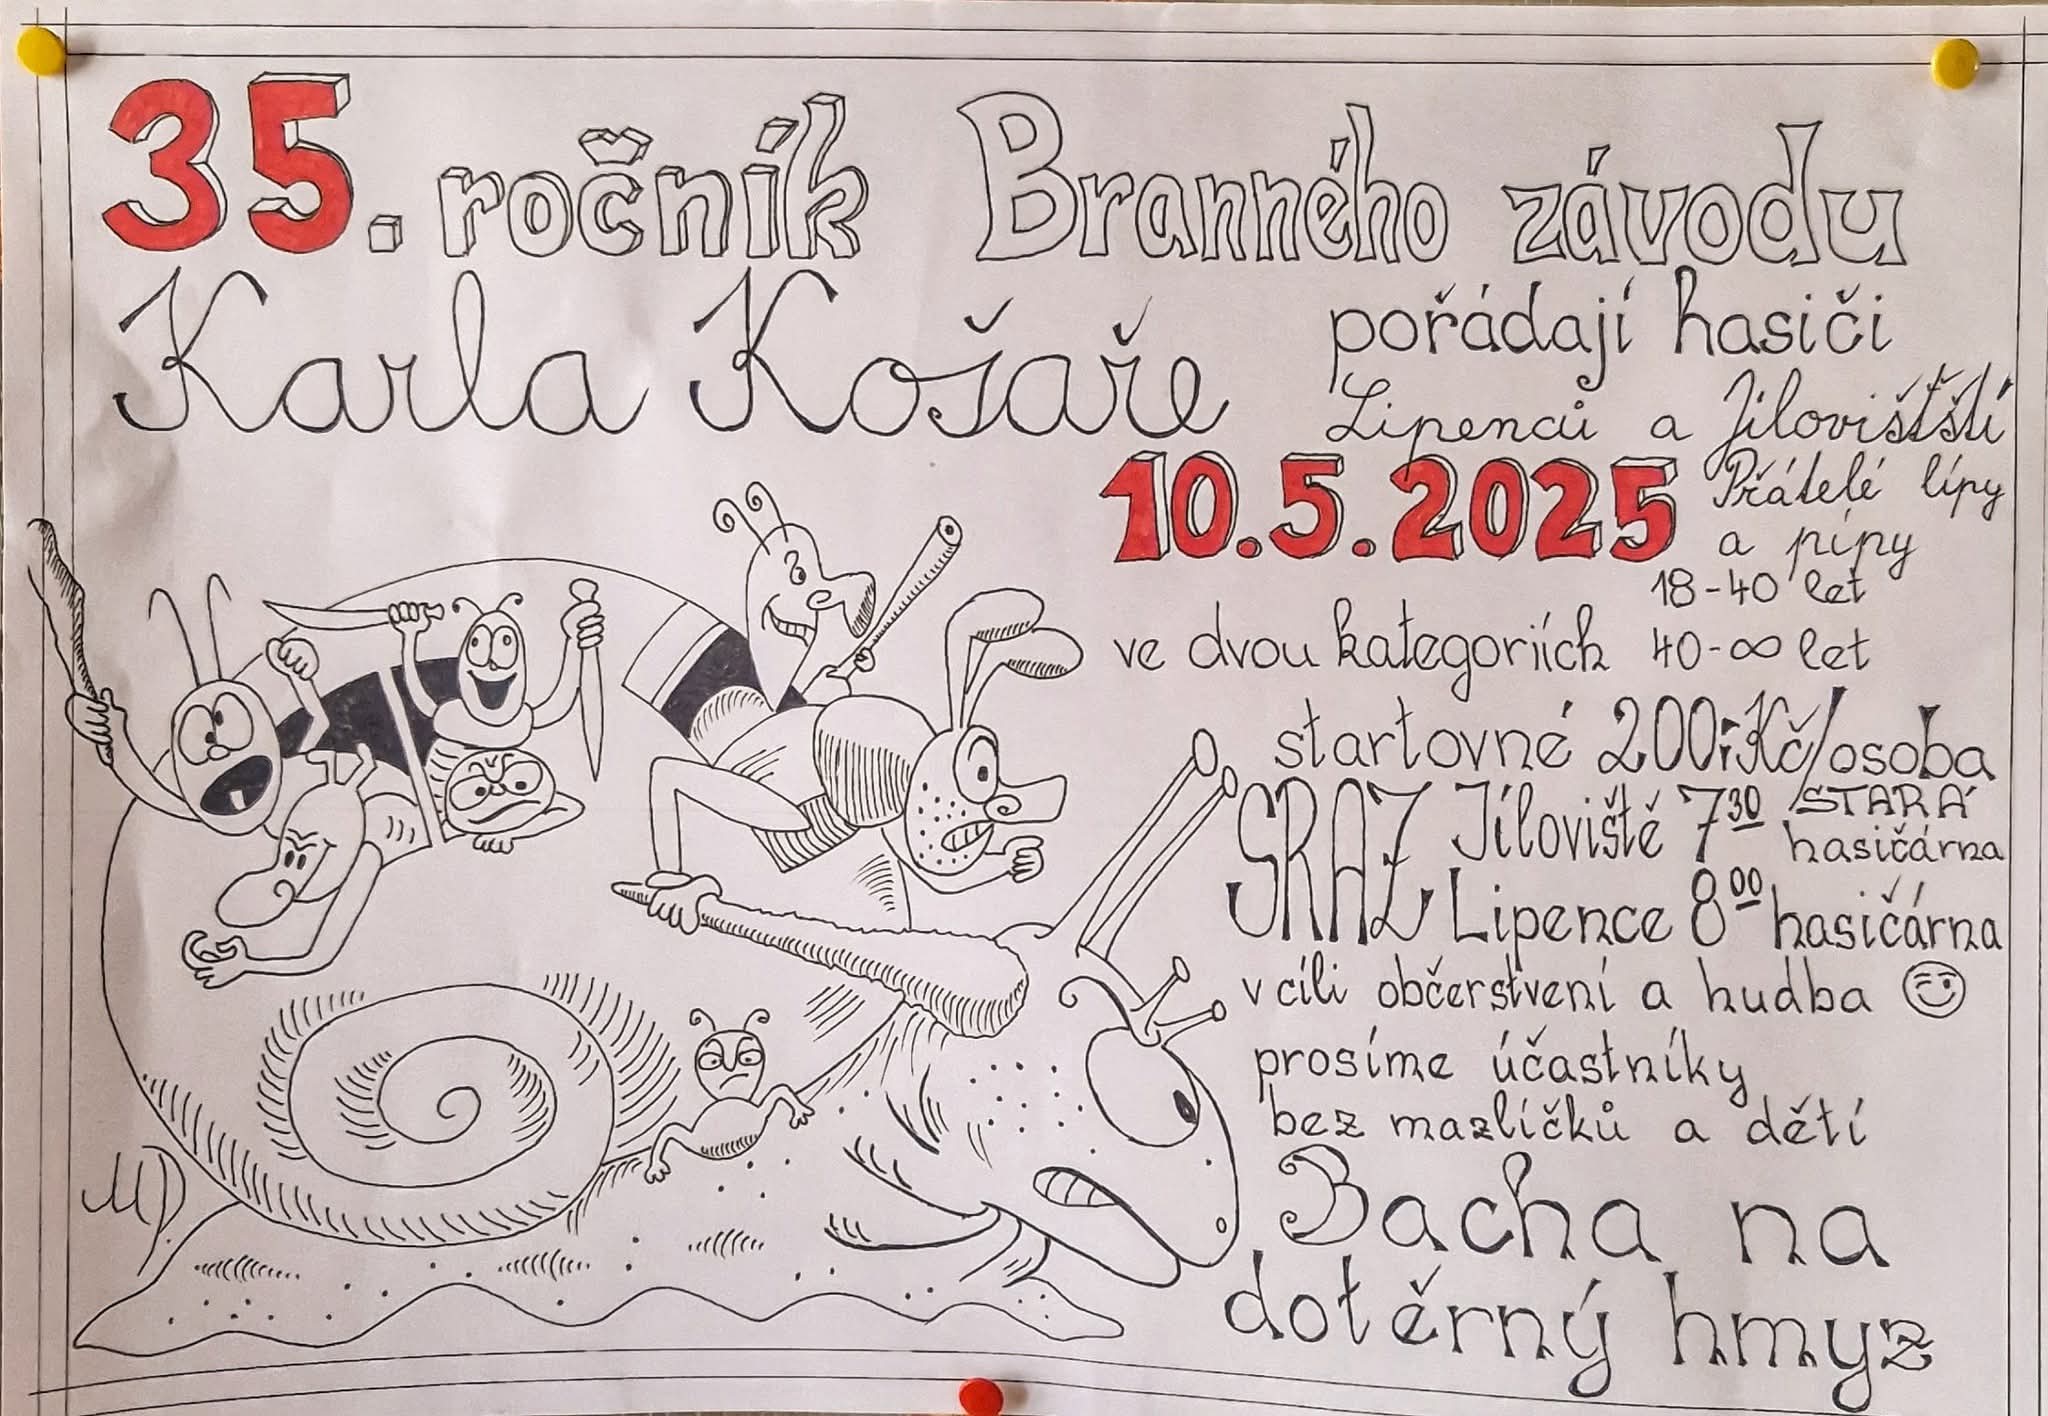 35. ročník Branného závodu
Karla Košaře
pořádají hasiči
Lipenců a Jílovišťští
Přátelé lípy
a pípy
10.5.2025
ve dvou kategoriích
18-40 let
40-∞ let
startovné 200,-Kč/osoba
SRAZ Jíloviště 7³⁰ STARÁ
hasičárna
Lipence 8⁰⁰ hasičárna
v cíli občerstvení a hudba
prosíme účastníky
bez mazlíčků a dětí
Bacha na
dotěrný hmyz
MP